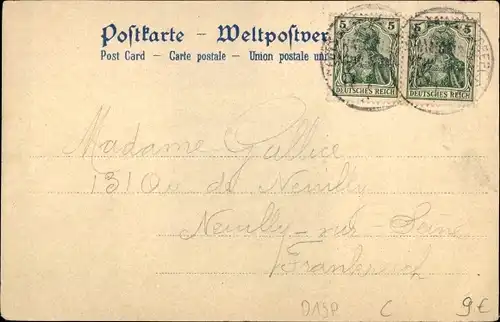 Postkarte – Weltpostver
Post Card – Carte postale – Union postale uni
5 5
5 5
DEUTSCHES REICH DEUTSCHES REICH
Madame Gallice
131 de Neuilly
Neuilly-sur-Seine
Frankreich
D19P C 9€